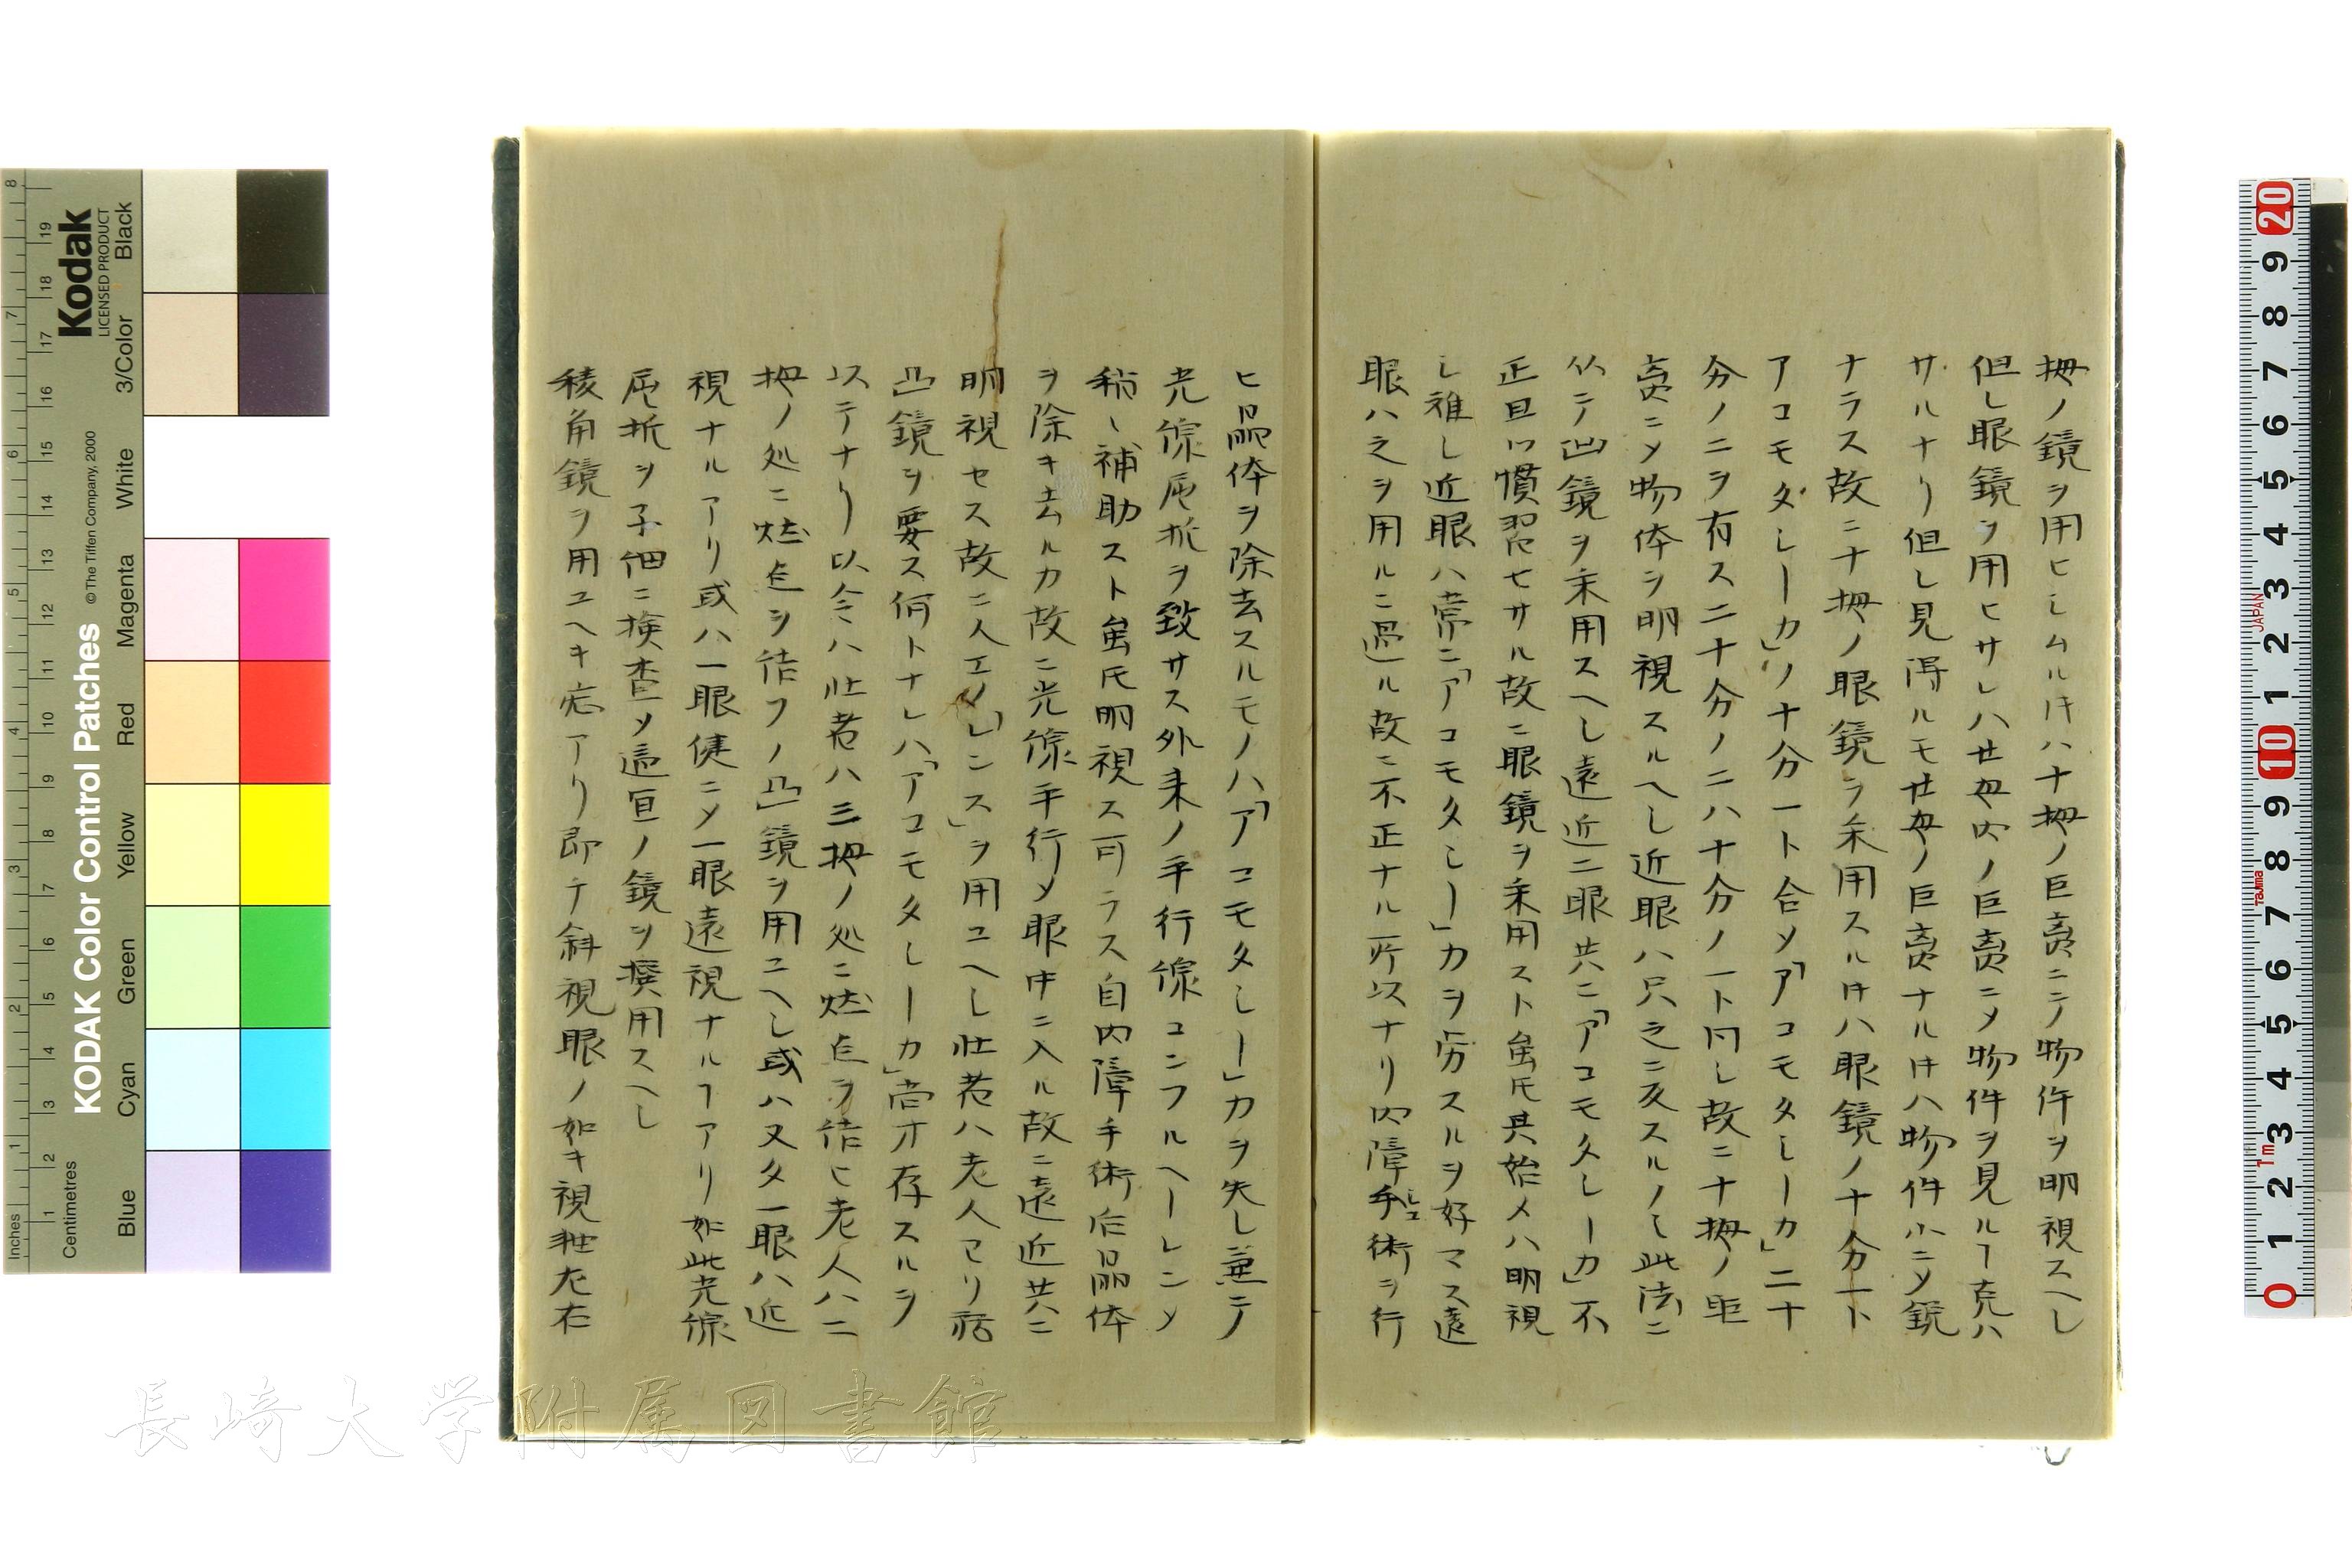 拇ノ鏡ヲ用ヒシムル𪜈ハ十拇ノ巨离ニテ物件ヲ明視スヘし
但し眼鏡ヲ用ヒサレハ廿拇内ノ巨离ニメ物件ヲ見ルヿ克ハ
サルナリ但し見得ルモ廿拇ノ巨离ナル𪜈ハ物件小ニメ鏡
ナラス故ニ十拇ノ眼鏡ヲ采用スル𪜈ハ眼鏡ノ十分一ト
アコモタレーカ」ノ十分一ト合メ「アコモタレーカ」二十
分ノ二ヲ有ス二十分ノ二ハ十分ノ一ト同し故ニ十拇ノ距
离ニメ物体ヲ明視スルヘし近眼ハ只之ニ反スルノミ此法ニ
从テ凹鏡ヲ采用スヘし遠近二眼共ニ「アコモタレーカ」不
正且ツ慣習セサル故ニ眼鏡ヲ采用スト虽𪜈其始メハ明視
し雖し近眼ハ常ニ「アコモタレー」カヲ労スルヲ好マス遠
眼ハ之ヲ用ルニ過ル故ニ不正ナル所以ナリ内障手術ヲ行
ヒ晶体ヲ除去スルモノハ「アコモタレー」カヲ失し兼テ
光線屈折ヲ致サス外来ノ平行線コンフルヘーレンメ
稍々補助スト虽𪜈明視ス可ラス自内障手術后晶体
ヲ除キ去ルカ故ニ光線平行メ眼中ニ入ル故ニ遠近共ニ
明視セス故ニ人工ノ「レンス」ヲ用ユヘし壮者ハ老人ヨリ弱
凸鏡ヲ要ス何トナレハ「アコモタレーカ」尚才存スルヲ
以テナリ以令ハ壮者ハ三拇ノ処ニ燃点ヲ結ヒ老人ハ二
拇ノ処ニ燃点ヲ結フノ凸鏡ヲ用ユヘし或ハ又タ一眼ハ近
視ナルアリ或ハ一眼健ニメ一眼遠視ナルヿアリ如此光線
屈折ヲ子細ニ検査メ適宜ノ鏡ヲ撰用スヘし
稜角鏡ヲ用ユヘキ症アリ即チ斜視眼ノ如キ視軸左右
長崎大学附属図書館
KODAK Color Control Patches
© The Tiffen Company, 2000
Kodak
LICENSED PRODUCT
Inches
Centimetres
Blue
Cyan
Green
Yellow
Red
Magenta
White
3/Color
Black
JAPAN
Tajima
1m